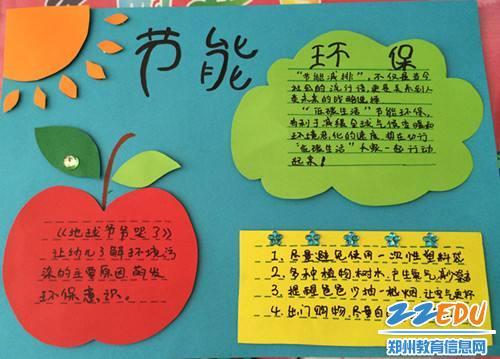 节能
环保
"节能减排",不仅是当今
社会的流行语,更是关系到人
类未来的战略选择
"低碳生活"节能环保,
有利于减缓全球气候变暖和
环境恶化的速度 势在必行
"低碳生活"大家一起行动
起来!
《地球爷爷哭了》
让幼儿了解环境污
染的主要原因,萌发
环保意识。
1、尽量避免使用一次性塑料袋
2、多种植物、树木,产生氧气,减少雾霾
3、提醒爸爸少抽一根烟,让空气更好
4、出门购物,尽量自
ZZEDU
郑州教育信息网